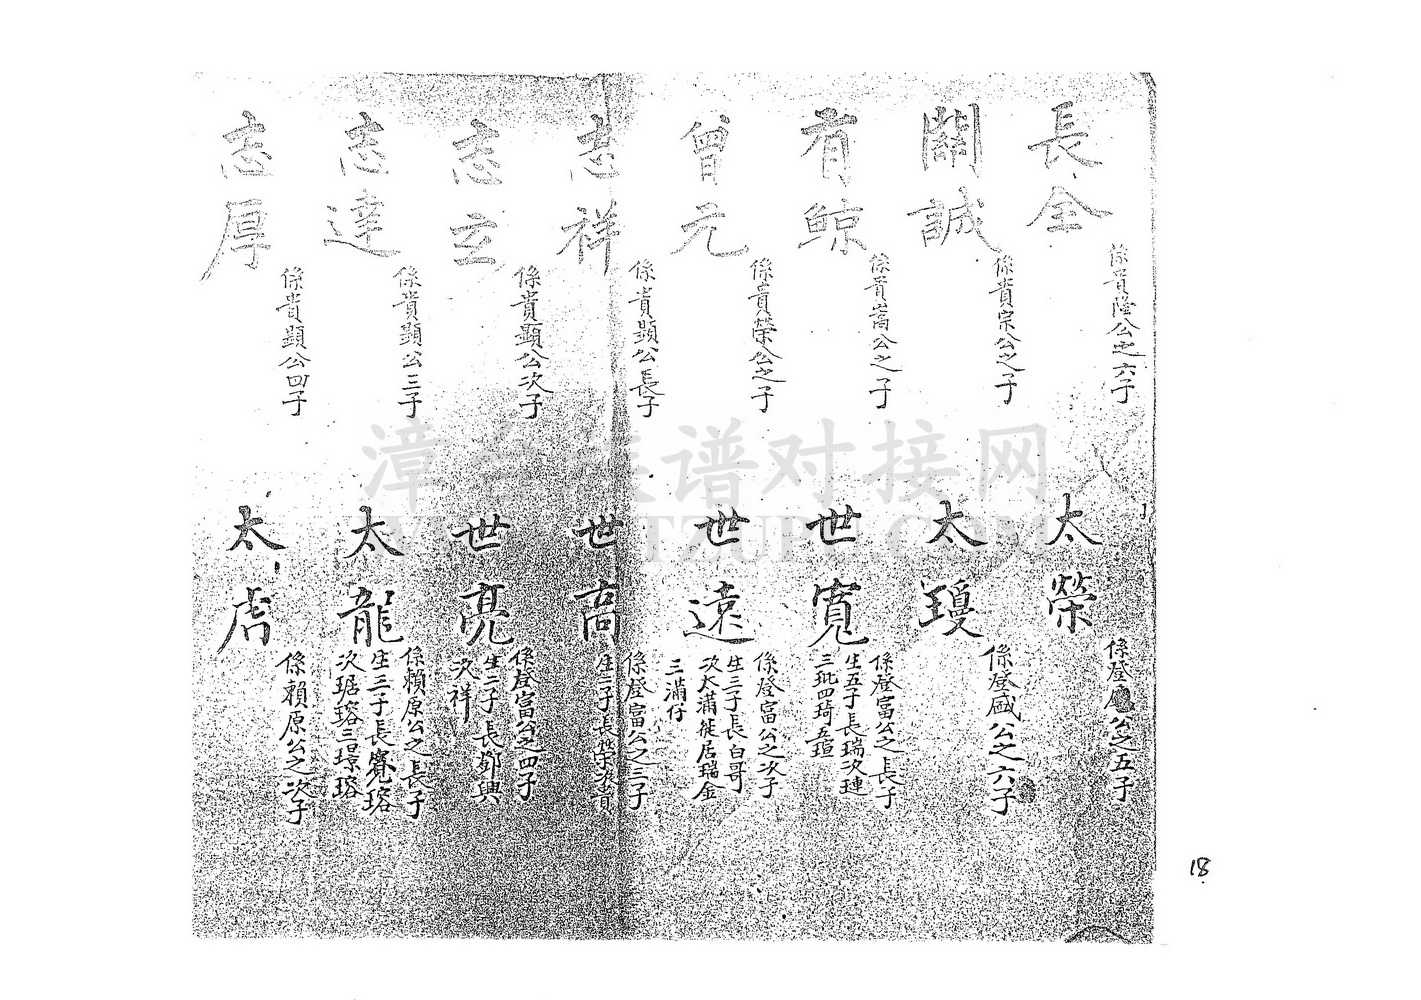 長金
係貴隆公之六子
關誠
係貴宗公之子
有鯨
係貴嵩公之子
曾元
係貴榮公之子
志祥
係貴顯公長子
志立
係貴顯公次子
志達
係貴顯公三子
志厚
係貴顯公四子
太榮
係登公之五子
太瓊
係登盛公之六子
世寬
係登富公之長子
生五子長瑞次璉
三玭四琦五瑄
世遠
係登富公之次子
生三子長白哥
次大滿徙居瑞金
三滿仔
世高
係登富公之三子
生二子長榮次貴
世亮
係登富公之四子
生二子長鄧興
次祥
太龍
係賴原公之長子
生三子長寬瑢
次琚瑢三璟瑢
太虎
係賴原公之次子
漳台族谱对接网
WWW.ZTZUPU.COM
18